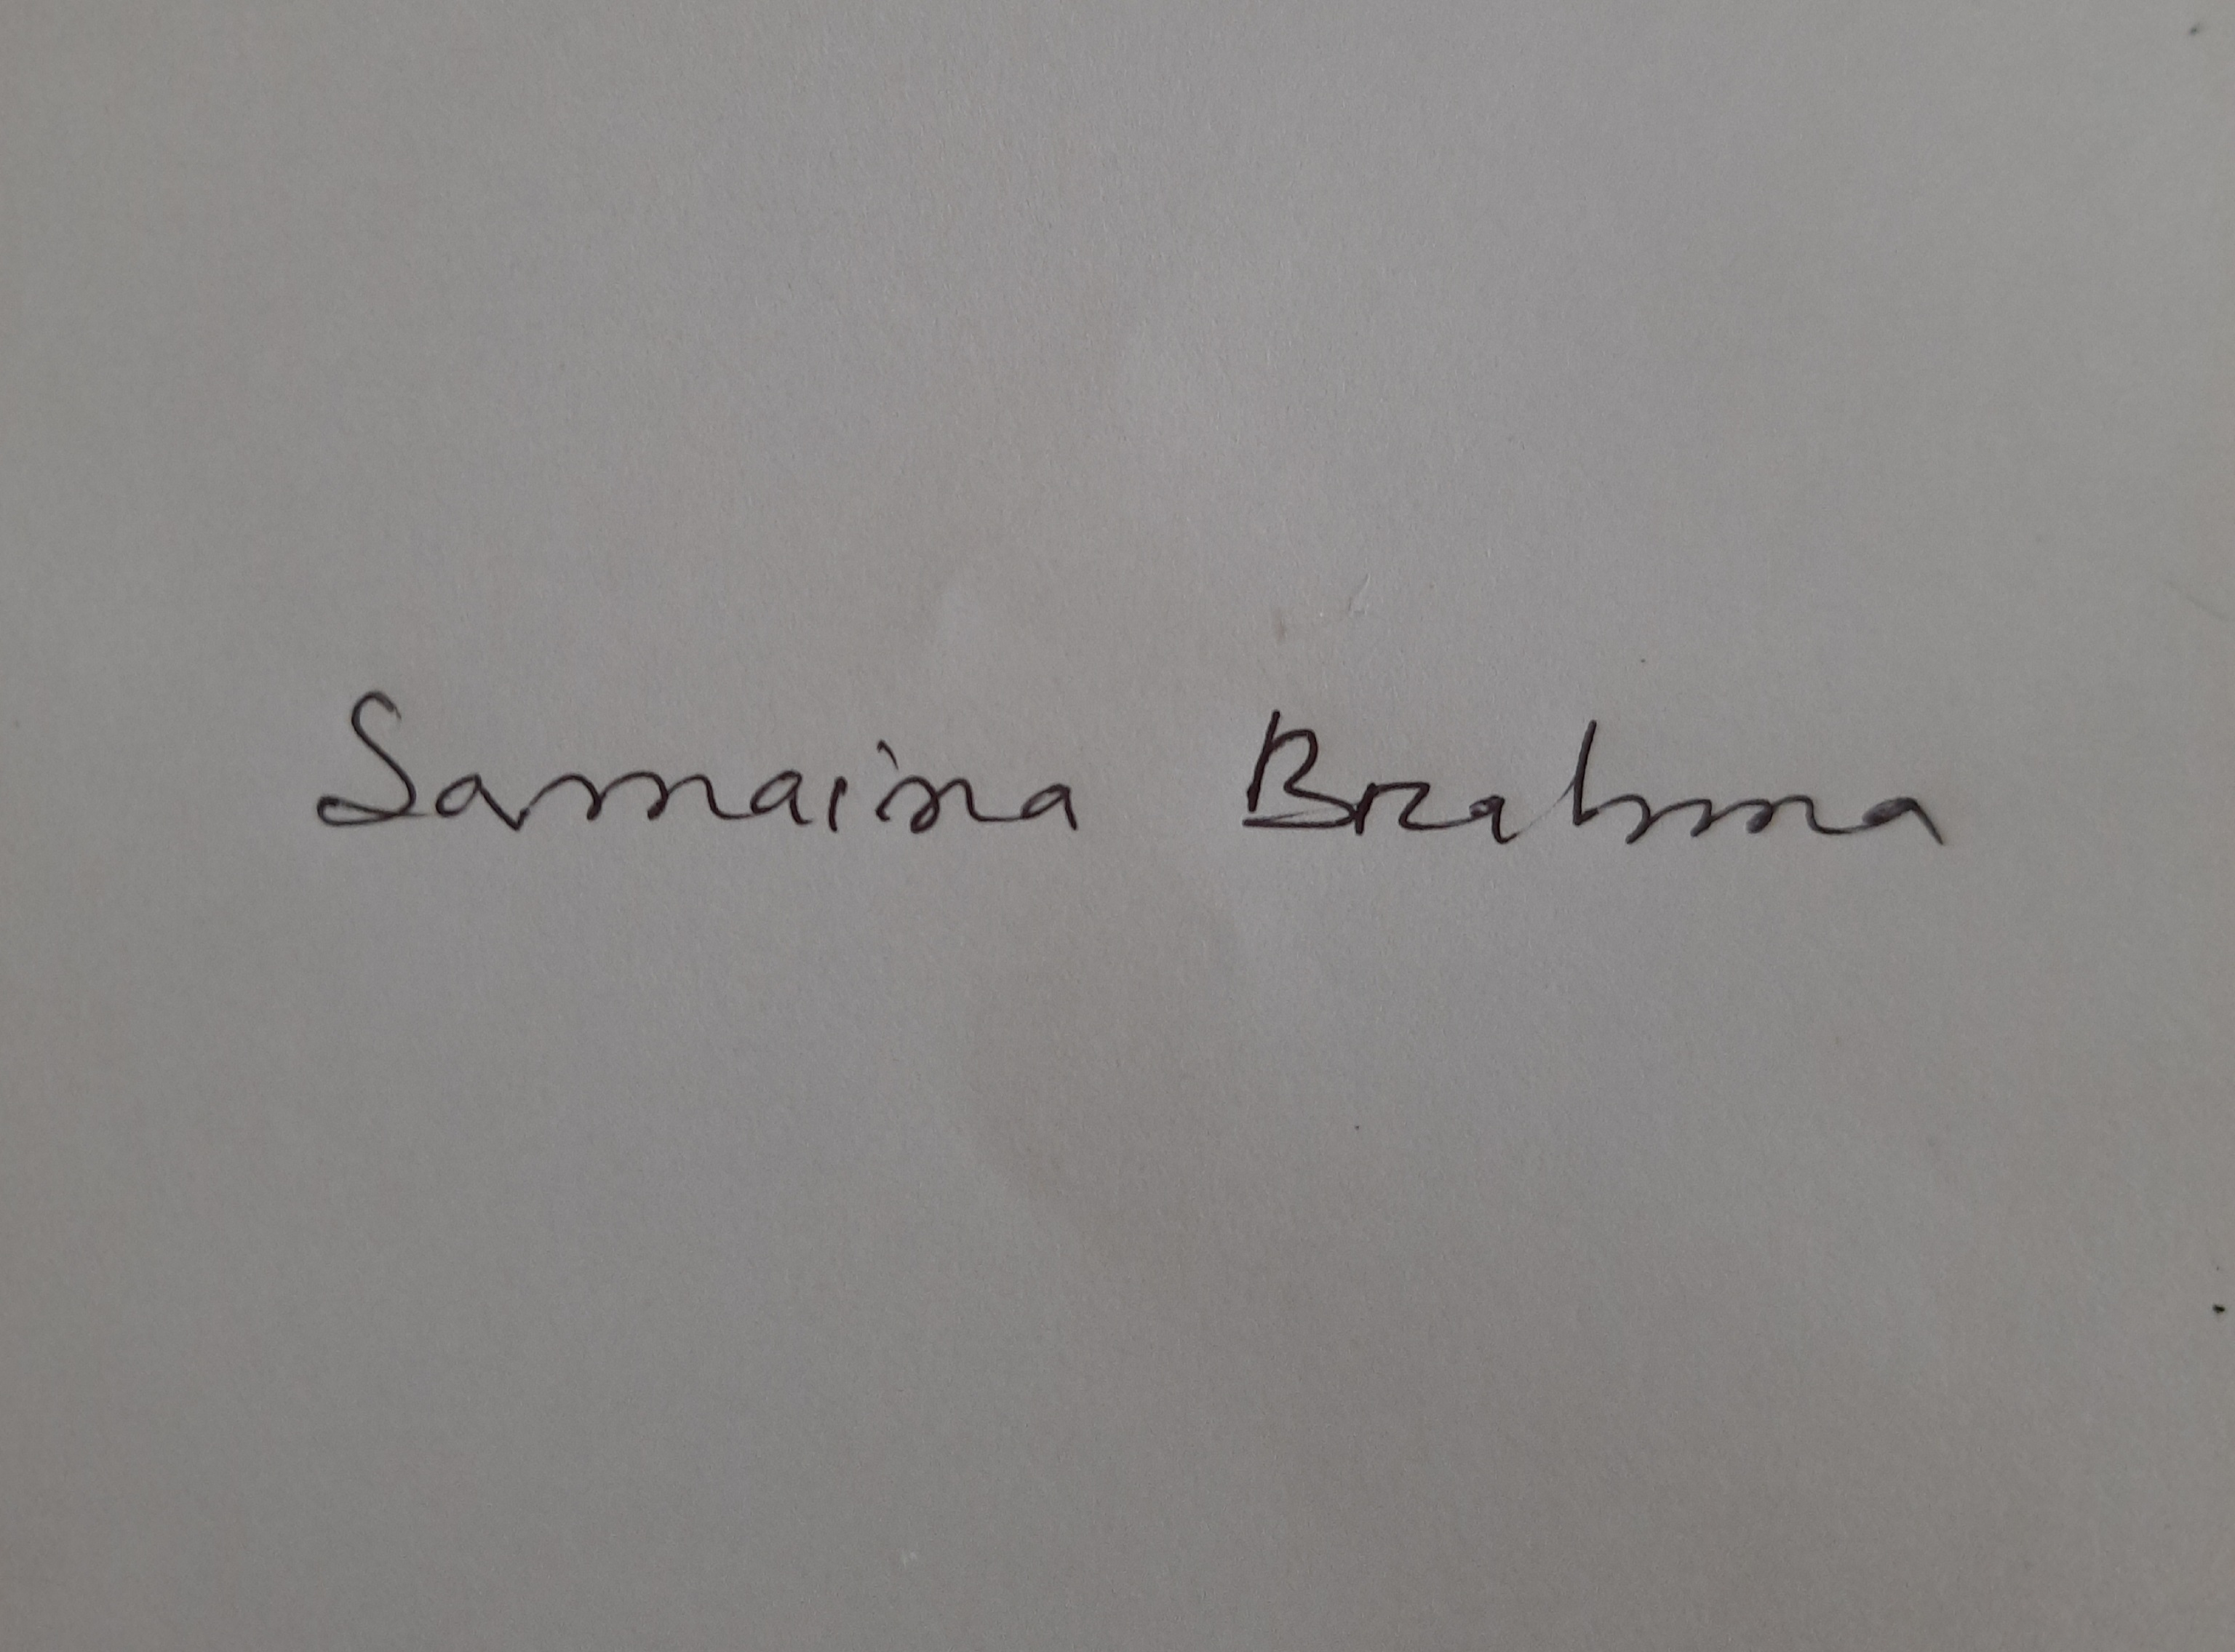 Samaina Brahma